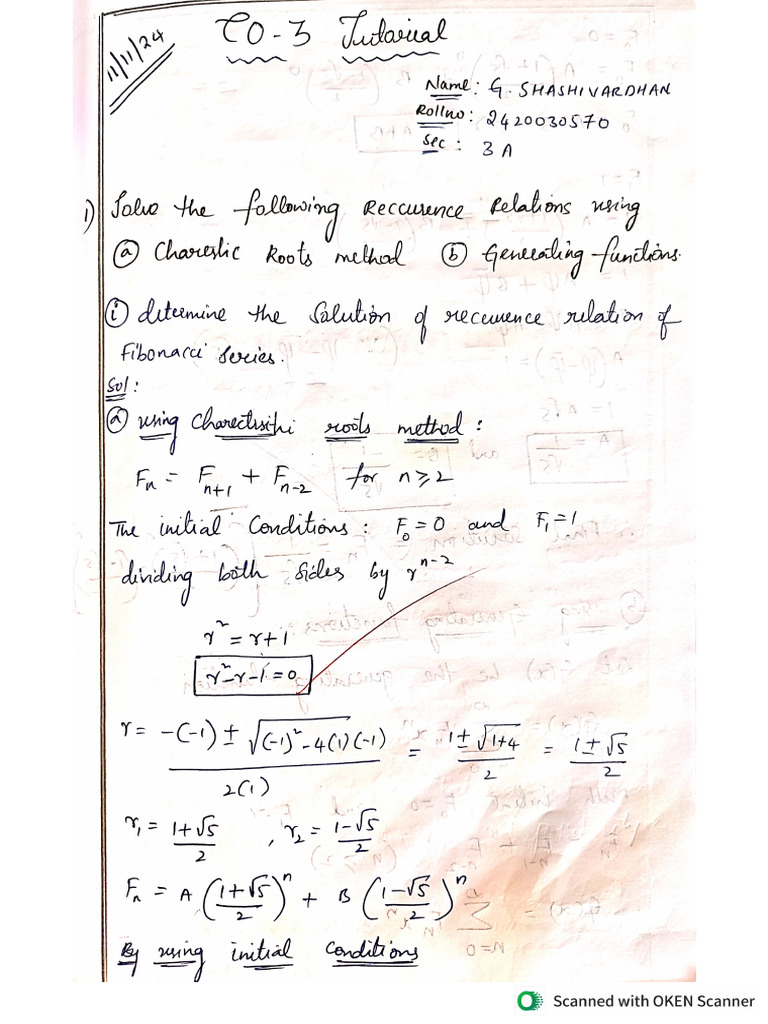 11/11/24
CO-3 Tutorial
Name: G. SHASHIVARDHAN
Rollno: 2420030570
Sec: 3A
1) Solve the following Reccurence Relations using
ⓐ Charestic Roots method ⓑ Generating functions.
ⓘ determine the Solution of recurence relation of
Fibonacci series.
Sol:
ⓐ using Charectristhi roots method:
Fₙ = Fₙ₊₁ + Fₙ₋₂ for n ≥ 2
The initial Conditions: F₀ = 0 and F₁ = 1
dividing both sides by rⁿ⁻²
r² = r+1
r²-r-1=0
r = -(-1) ± √((-1)²-4(1)(-1)) / 2(1) = 1±√(1+4) / 2 = 1±√5 / 2
r₁ = 1+√5 / 2 , r₂ = 1-√5 / 2
Fₙ = A (1+√5 / 2)ⁿ + B (1-√5 / 2)ⁿ
By using initial conditions
Scanned with OKEN Scanner